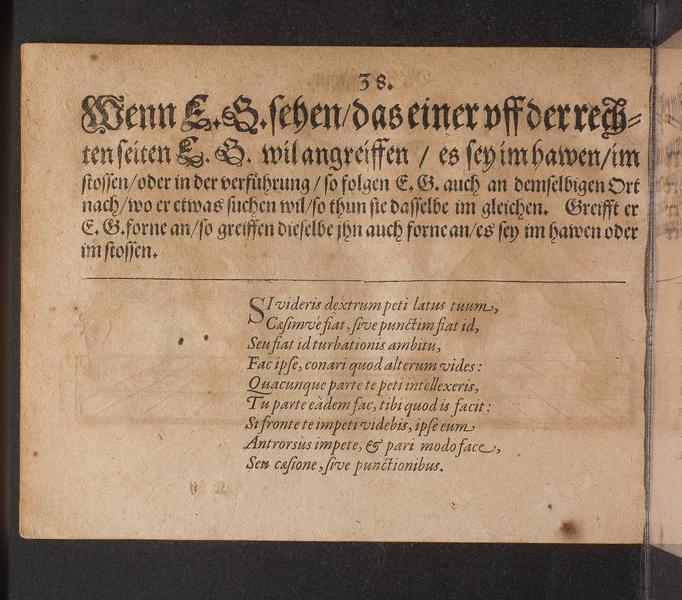 38.
Wenn E. G. sehen/das einer vff der rech-
ten seiten E. G. wil angreiffen / es sey im hawen/im
stossen/oder in der verführung/so folgen E. G. auch an demselbigen Ort
nach/wo er etwas suchen wil/so thun sie dasselbe im gleichen. Greifft er
E. G. forne an/so greiffen dieselbe jhn auch forne an/es sey im hawen oder
im stossen.
SI videris dextrum peti latus tuum,
Cæsimve fiat, sive punctim fiat id,
Seu fiat id turbationis ambitu,
Fac ipse, conari quod alterum vides:
Quacunque parte te peti intellexeris,
Tu parte eàdem fac, tibi quod is facit:
Si fronte te impeti videbis, ipse eum
Antrorsùs impete, & pari modo face,
Seu cæsione, sive punctionibus.